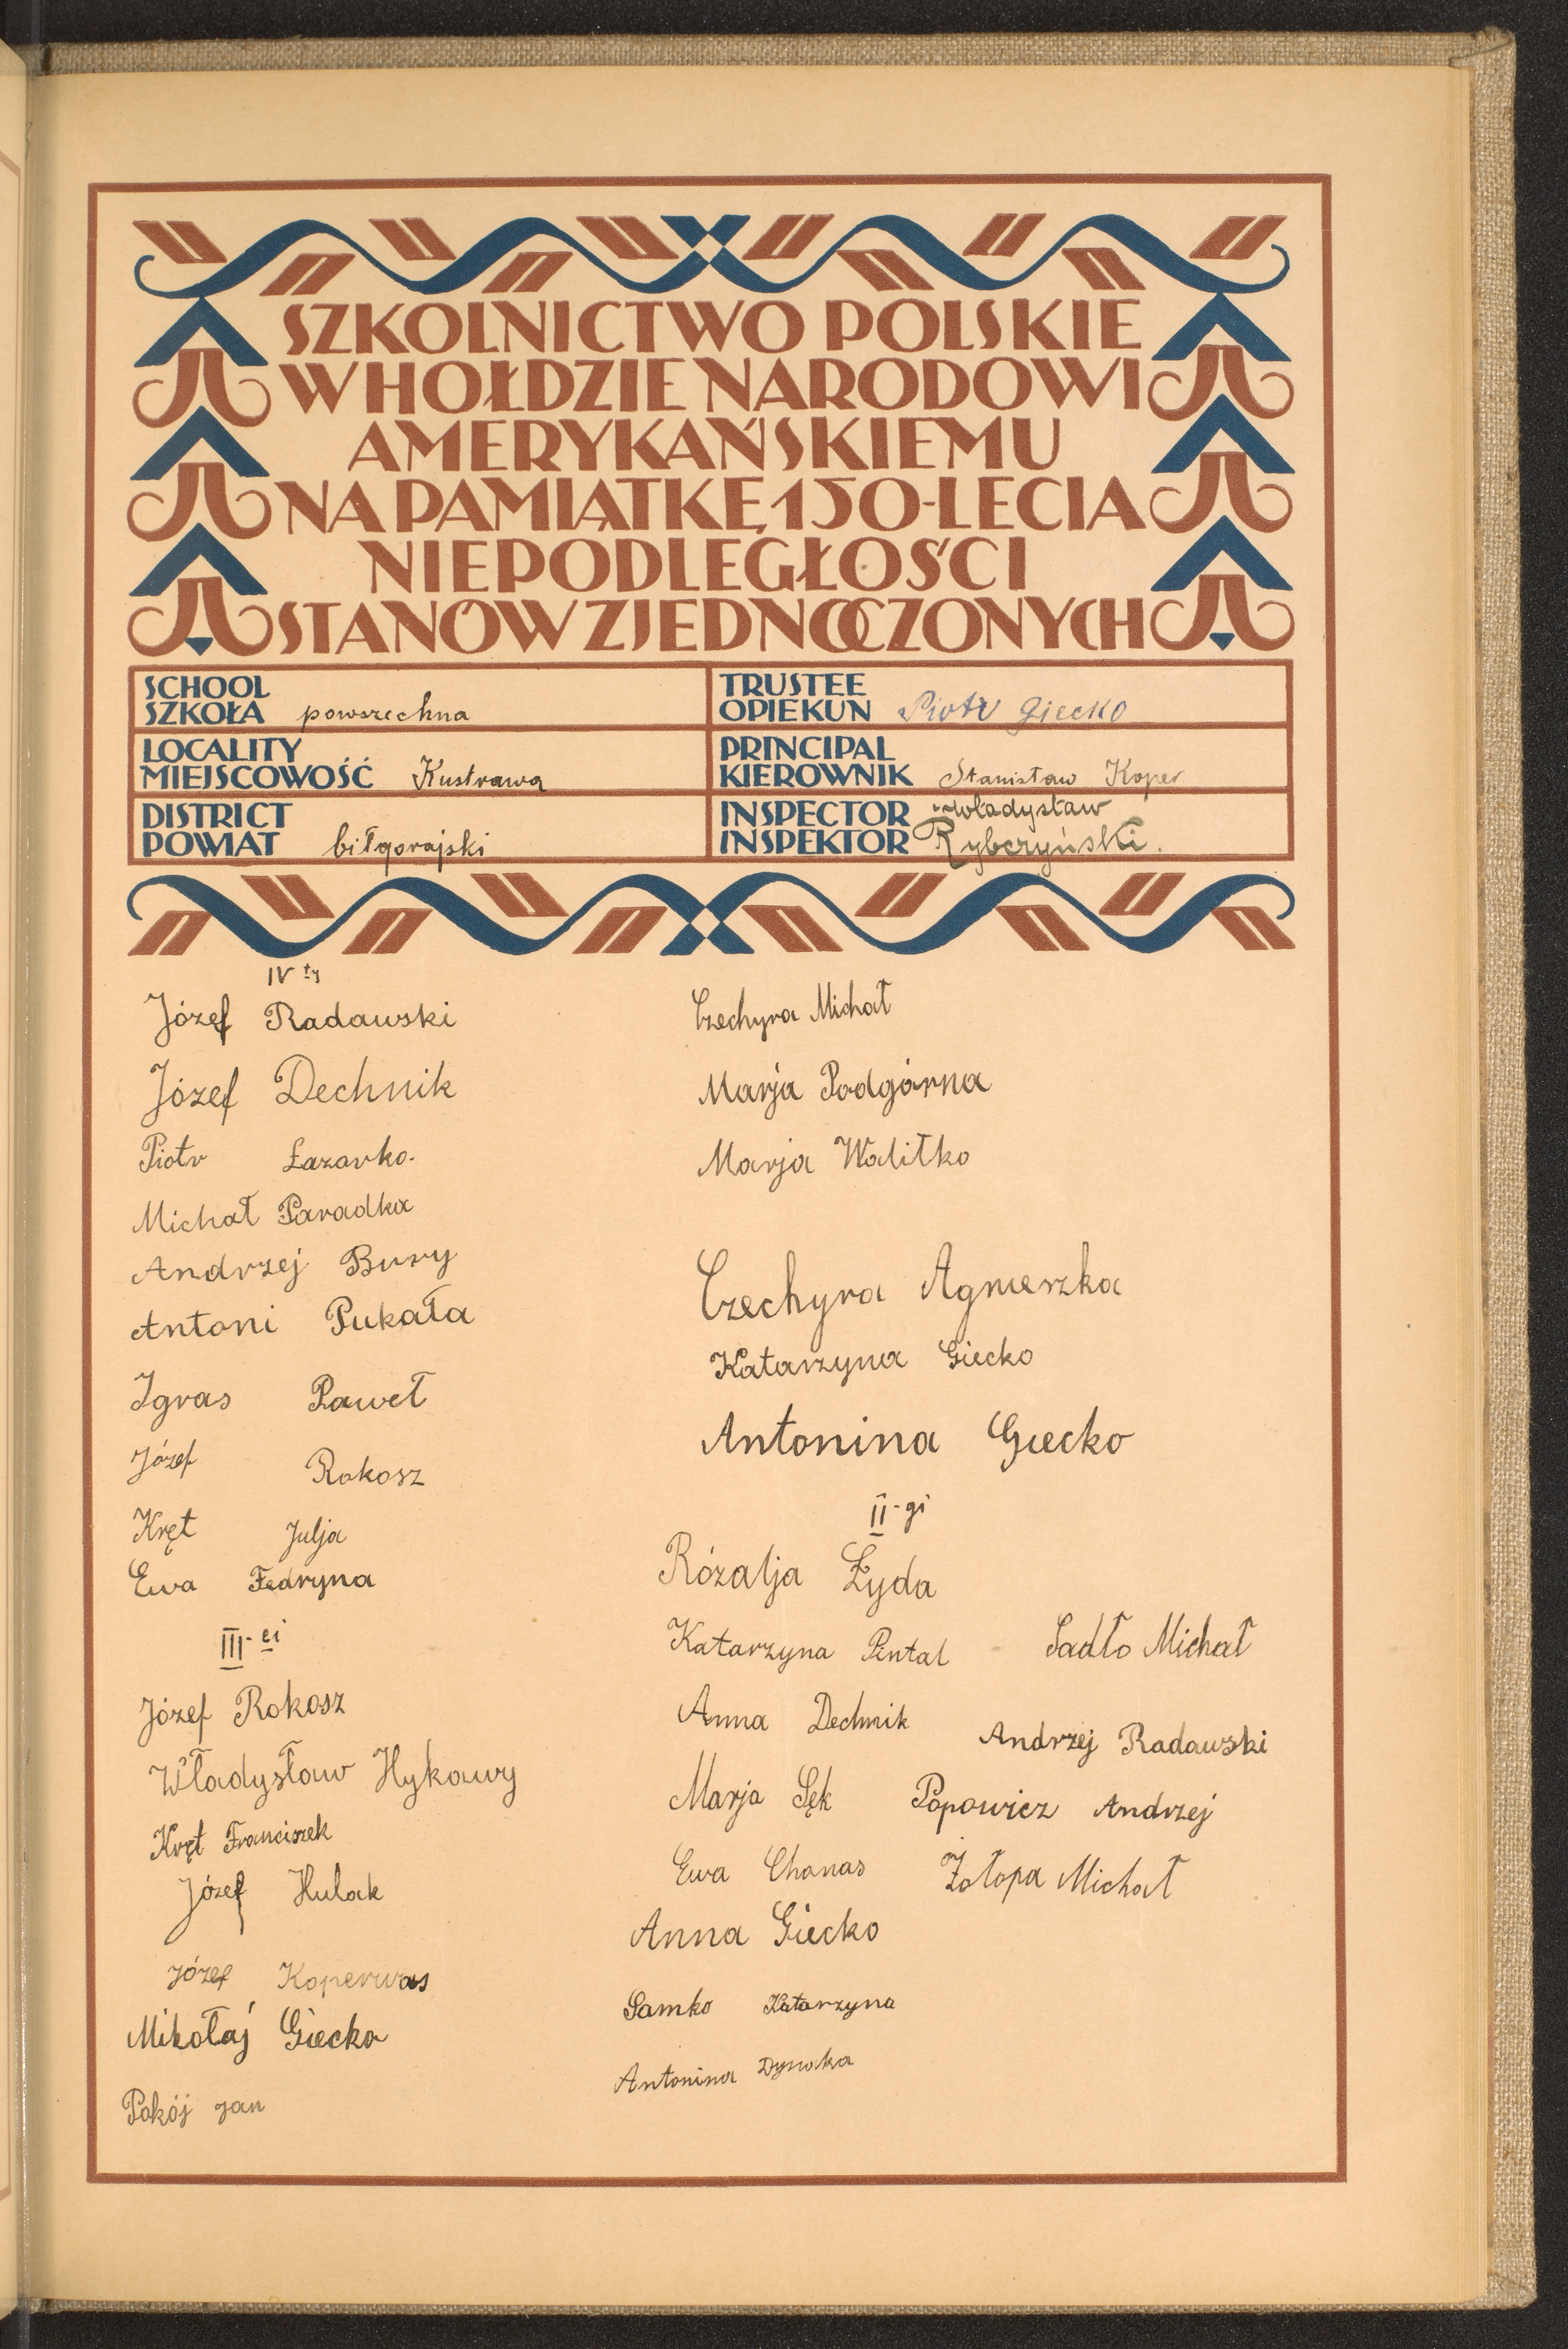 SZKOLNICTWO POLSKIE
W HOŁDZIE NARODOWI
AMERYKAŃSKIEMU
NA PAMIĄTKĘ 150-LECIA
NIEPODLEGŁOŚCI
STANÓW ZJEDNOCZONYCH
SCHOOL
SZKOŁA powszechna
TRUSTEE
OPIEKUN Piotr Giecko
LOCALITY
MIEJSCOWOŚĆ Kustrawa
PRINCIPAL
KIEROWNIK Stanisław Koper
DISTRICT
POWIAT biłgorajski
INSPECTOR Władysław
INSPEKTOR Rybczyński.
IV ty
Józef Radawski
Józef Dechnik
Piotr Łazarko.
Michał Paradka
Andrzej Bury
Antoni Pukała
Igras Paweł
Józef Rokosz
Kręt Julja
Ewa Fedryna
III-ci
Józef Rokosz
Władysław Hykawy
Kręt Franciszek
Józef Hulak
Józef Koperwas
Mikołaj Giecko
Pokój Jan
Czechyra Michał
Marja Podgórna
Marja Walitko
Czechyra Agnieszka
Katarzyna Giecko
Antonina Giecko
II-gi
Rózalja Łyda
Katarzyna Pintal
Anna Dechnik
Marja Sęk
Ewa Chanas
Anna Giecko
Samko Katarzyna
Antonina
Sadło Michał
Andrzej Radawski
Popowicz Andrzej
Zołopa Michał